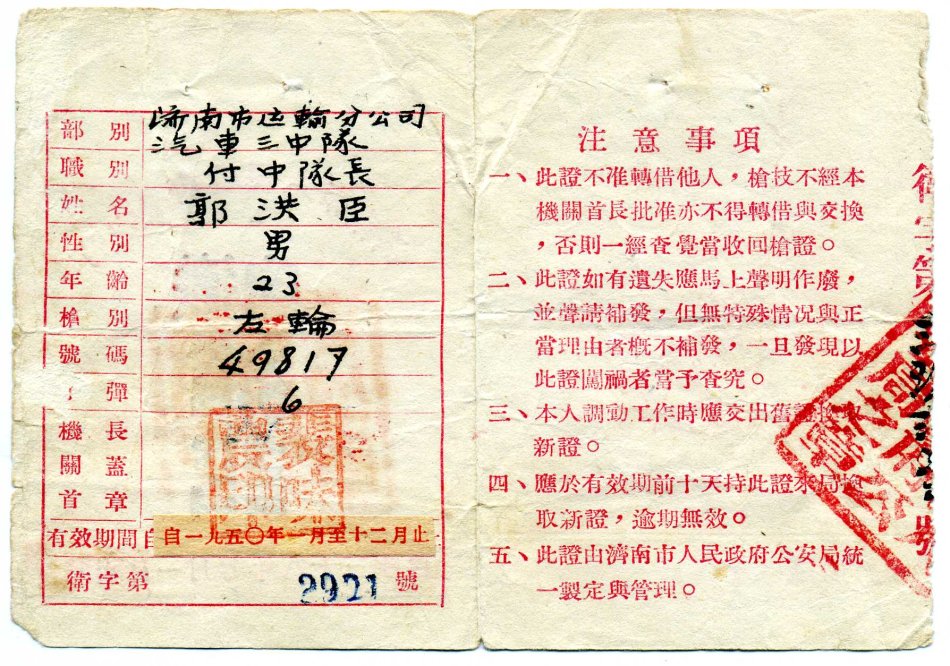 部別 济南市运輸分公司
汽車三中隊
職別 付中隊長
姓名 郭洪臣
性別 男
年齡 23
槍別 左輪
號碼 49817
彈 6
機關首長蓋章
有效期間自
自一九五〇年一月至十二月止
衛字第 2921 號
注意事項
一、此證不准轉借他人，槍枝不經本
機關首長批准亦不得轉借與交換
，否則一經查覺當收回槍證。
二、此證如有遺失應馬上聲明作廢，
並聲請補發，但無特殊情况與正
當理由者槪不補發，一旦發現以
此證闖禍者當予查究。
三、本人調動工作時應交出舊證換取
新證。
四、應於有效期前十天持此證來局換
取新證，逾期無效。
五、此證由濟南市人民政府公安局統
一製定與管理。